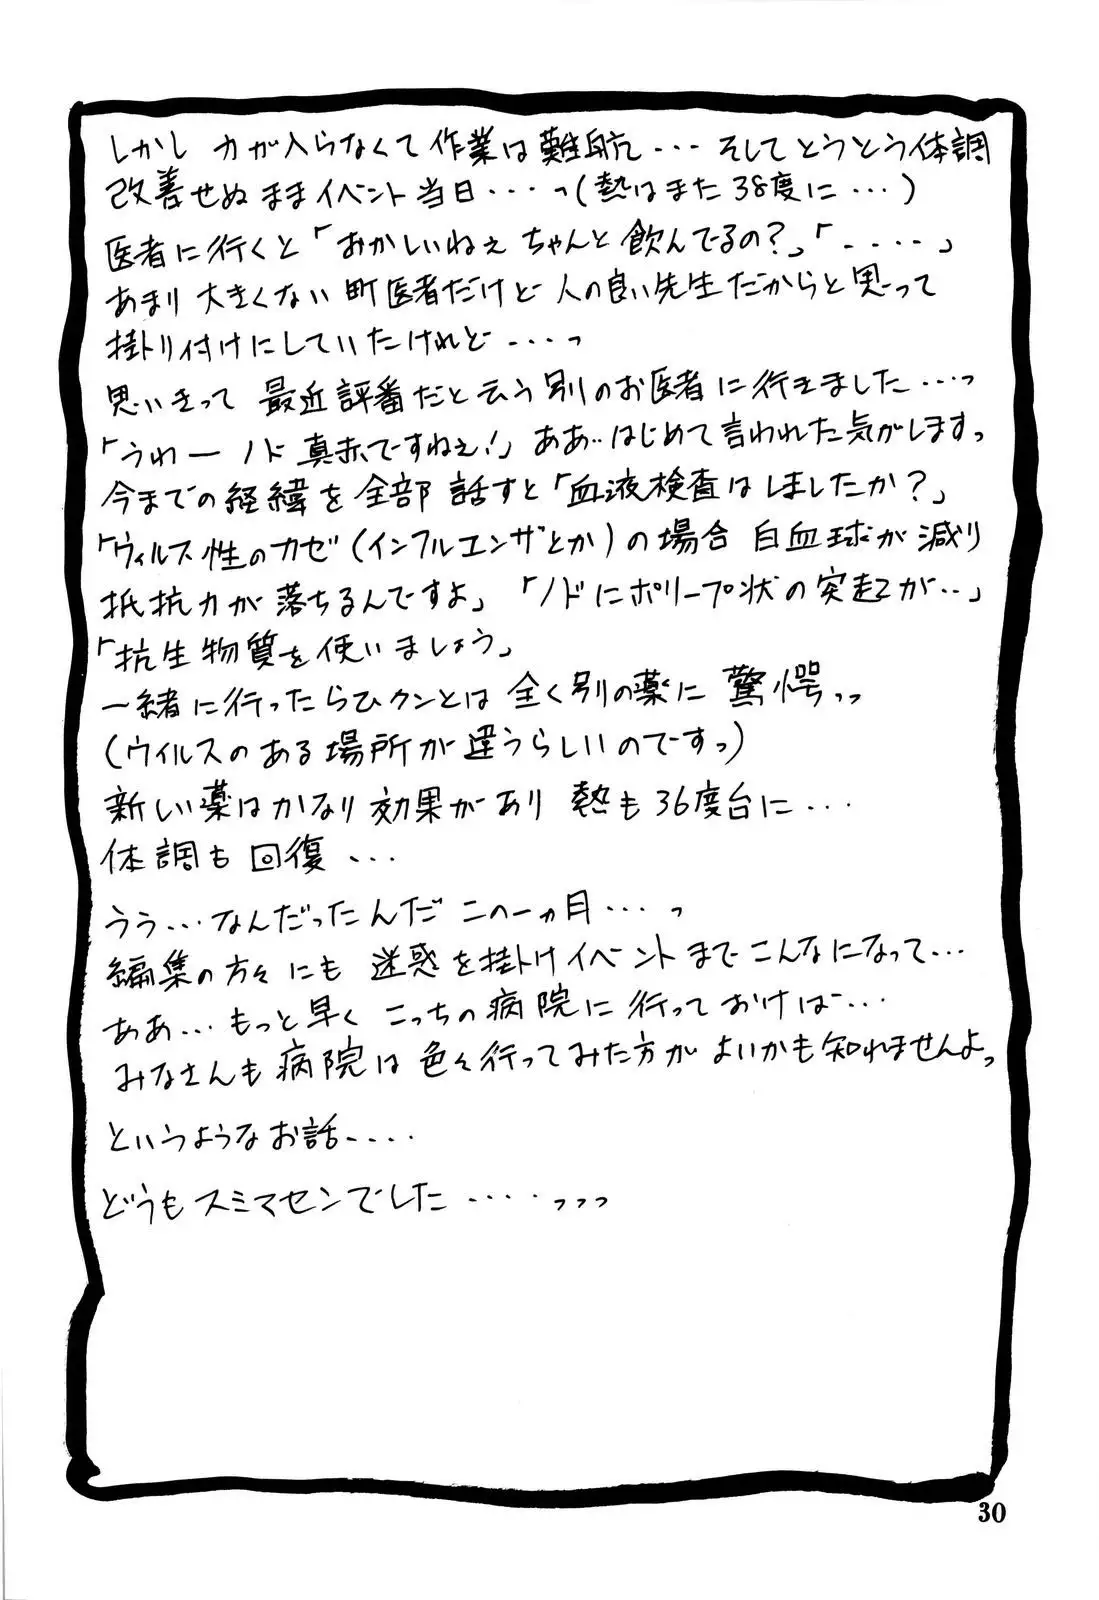 しかし 力が入らなくて作業は難航･･･そしてとうとう体調
改善せぬままイベント当日････っ(熱はまた38度に･･･)
医者に行くと「おかしいねぇ ちゃんと飲んでるの?」「････」
あまり大きくない町医者だけど人の良い先生だからと思って
掛トリ付けにしていたけれど････っ
思いきって 最近評番だと云う別のお医者に行きました･･･っ
「うわー ノド真赤ですねぇ!」ああ‥はじめて言われた気がしますっ
今までの経緯を全部話すと「血液検査はしましたか?」
「ウィルス性のカゼ(インフルエンザとか)の場合 白血球が減り
抵抗力が落ちるんですよ」「ノドにポリープ状の突起が‥」
「抗生物質を使いましょう」
一緒に行ったらひクンとは全く別の薬に驚愕っっ
(ウイルスのある場所が違うらしいのですっ)
新しい薬はかなり効果があり 熱も36度台に･･･
体調も回復･･･
うぅ･･･なんだったんだこの一ヵ月････っ
編集の方々にも迷惑を掛けイベントまでこんなになって･･･
ああ･･･もっと早くこっちの病院に行っておけば･･･
みなさんも病院は色々行ってみた方がよいかも知れませんよっ
というようなお話････
どうもスミマセンでした････っっっ
30